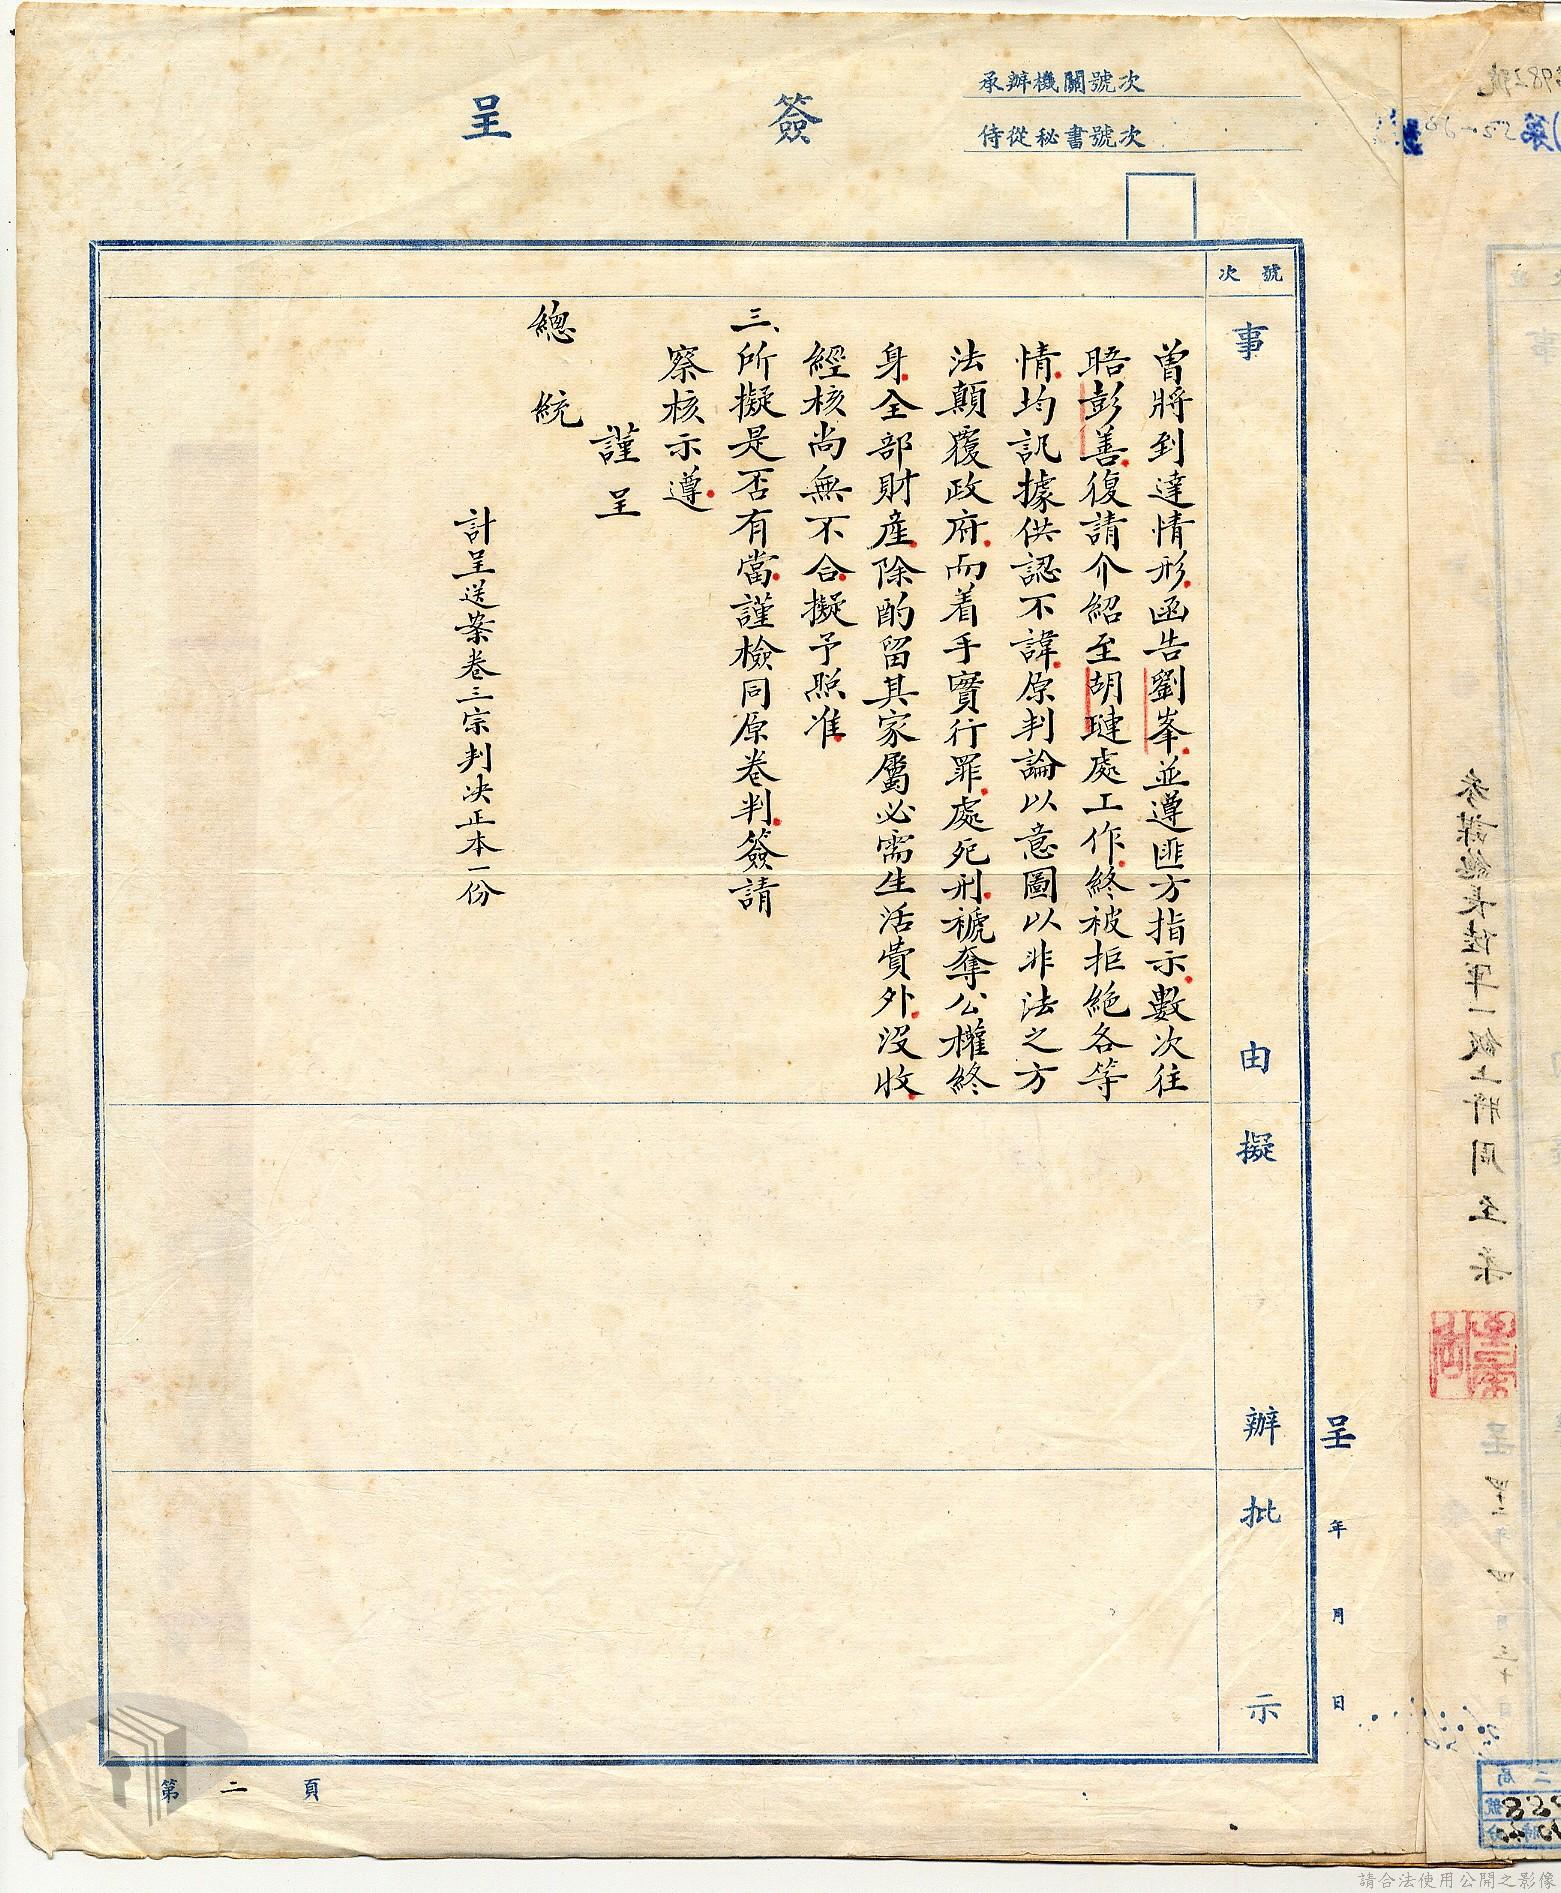 簽呈
承辦機關號次
侍從秘書號次
號次
事由
擬辦
批示
曾將到達情形函告劉峯並遵匪方指示數次往
晤彭善復請介紹至胡璉處工作終被拒絕各等
情均訊據供認不諱原判論以意圖以非法之方
法顛覆政府而着手實行罪處死刑褫奪公權終
身全部財產除酌留其家屬必需生活費外沒收
經核尚無不合擬予照准
三、所擬是否有當謹檢同原卷判簽請
察核示遵
謹呈
總統
計呈送案卷三宗判決正本一份
呈 年 月 日
第二頁
參謀總長陸軍一級上將周至柔
呈 四十二年四月三十日
請合法使用公開之影像